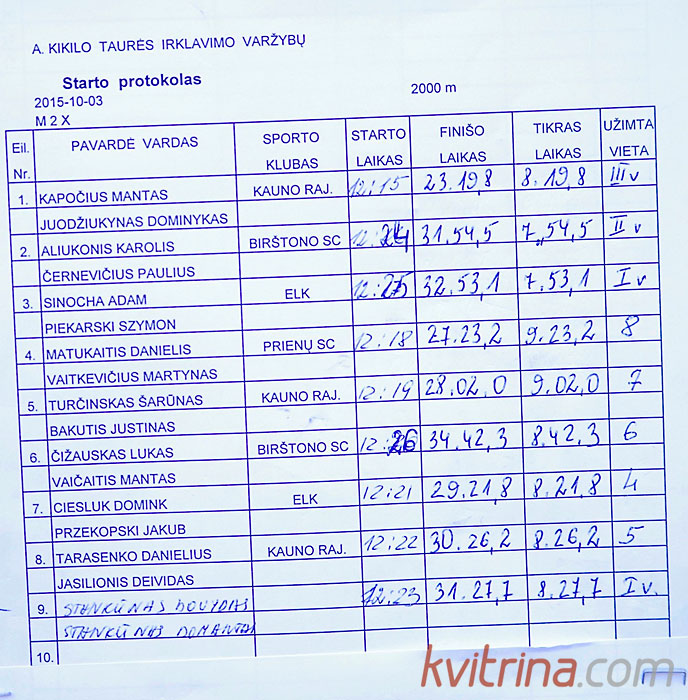 A. KIKILO TAURĖS IRKLAVIMO VARŽYBŲ
Starto protokolas
2015-10-03 2000 m
M 2 X
Eil. Nr. PAVARDĖ VARDAS SPORTO KLUBAS STARTO LAIKAS FINIŠO LAIKAS TIKRAS LAIKAS UŽIMTA VIETA
1. KAPOČIUS MANTAS KAUNO RAJ. 12:15 23.19,8 8.19,8 III v
JUODŽIUKYNAS DOMINYKAS
2. ALIUKONIS KAROLIS BIRŠTONO SC 12:24 31.54,5 7.54,5 II v
ČERNEVIČIUS PAULIUS
3. SINOCHA ADAM ELK 12:25 32.53,1 7.53,1 I v
PIEKARSKI SZYMON
4. MATUKAITIS DANIELIS PRIENŲ SC 12:18 27.23,2 9.23,2 8
VAITKEVIČIUS MARTYNAS
5. TURČINSKAS ŠARŪNAS KAUNO RAJ. 12:19 28.02.0 9.02,0 7
BAKUTIS JUSTINAS
6. ČIŽAUSKAS LUKAS BIRŠTONO SC 12:26 34.42,3 8.42.3 6
VAIČAITIS MANTAS
7. CIESLUK DOMINK ELK 12:21 29.21,8 8.21,8 4
PRZEKOPSKI JAKUB
8. TARASENKO DANIELIUS KAUNO RAJ. 12:22 30.26,2 8.26,2 5
JASILIONIS DEIVIDAS
9. STANKŪNAS DOVYDAS 12:23 31.27,7 8.27,7 I v.
STANKŪNAS DOMANTAS
10.
kvitrina.com